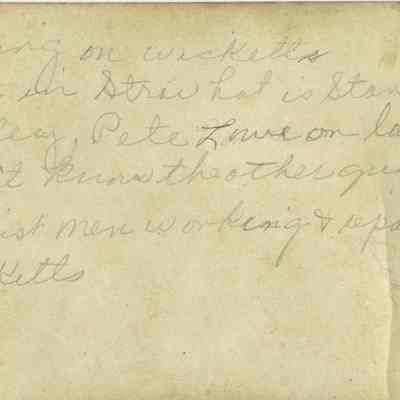 ing on wicketts
in Straw hat is Stan
leaz, Pete Lowe on la
't know the other gui
ist men working & repa
ketts